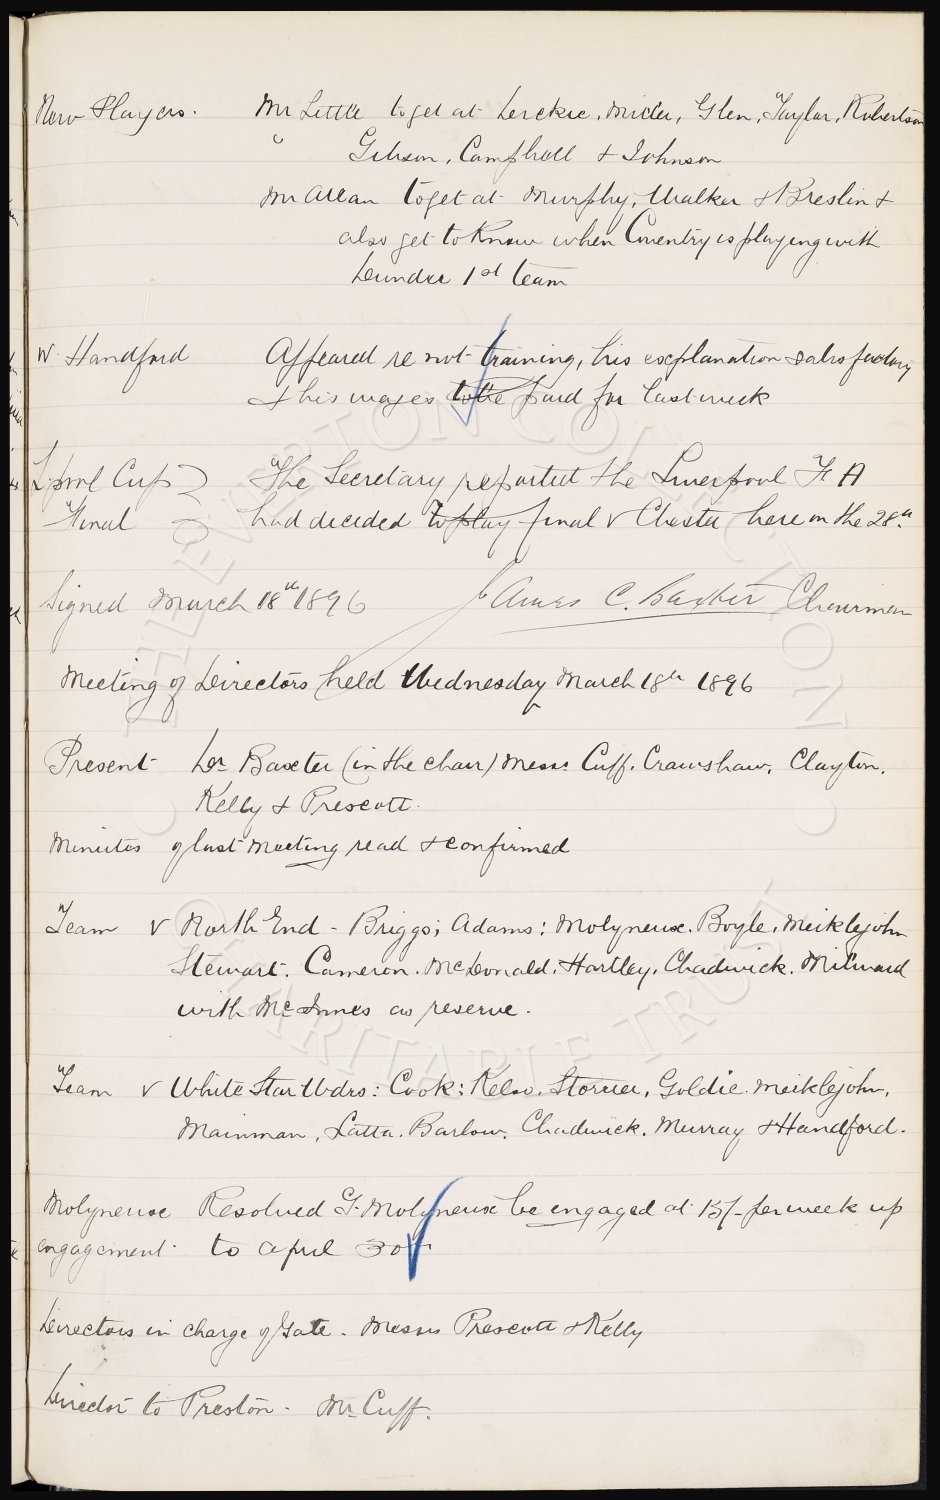 New Players. Mr Little to get at Leckie, Miller, Glen, Taylor, Robertson
" Gibson, Campbell & Johnson
Mr Allan to get at Murphy, Walker & Breslin &
also get to know when Coventry is playing with
Dundee 1st team
W Handford Appeared re not training, his explanation satisfactory
& his wages to be paid for last week
L'pool Cup The Secretary reported the Liverpool F A
Final had decided to play final v Chester here on the 28th
Signed March 18th 1896 James C. Baxter Chairman
Meeting of Directors held Wednesday March 18th 1896
Present Dr Baxter (in the chair) Messrs Cuff, Crawshaw, Clayton,
Kelly & Prescott.
Minutes of last meeting read & confirmed
Team v North End - Briggs; Adams: Molyneux. Boyle, Meiklejohn
Stewart. Cameron. McDonald, Hartley, Chadwick. Milward
with McInnes as reserve.
Team v White Star Wdrs: Cook: Kelso. Storrier, Goldie. Meiklejohn,
Mainman, Latta. Barlow. Chadwick. Murray & Handford.
Molyneux Resolved G. Molyneux be engaged at 15/- per week up
engagement to April 30th
Directors in charge of Gate - Messrs Prescott & Kelly
Director to Preston - Mr Cuff.
THE EVERTON COLLECTION
CHARITABLE TRUST